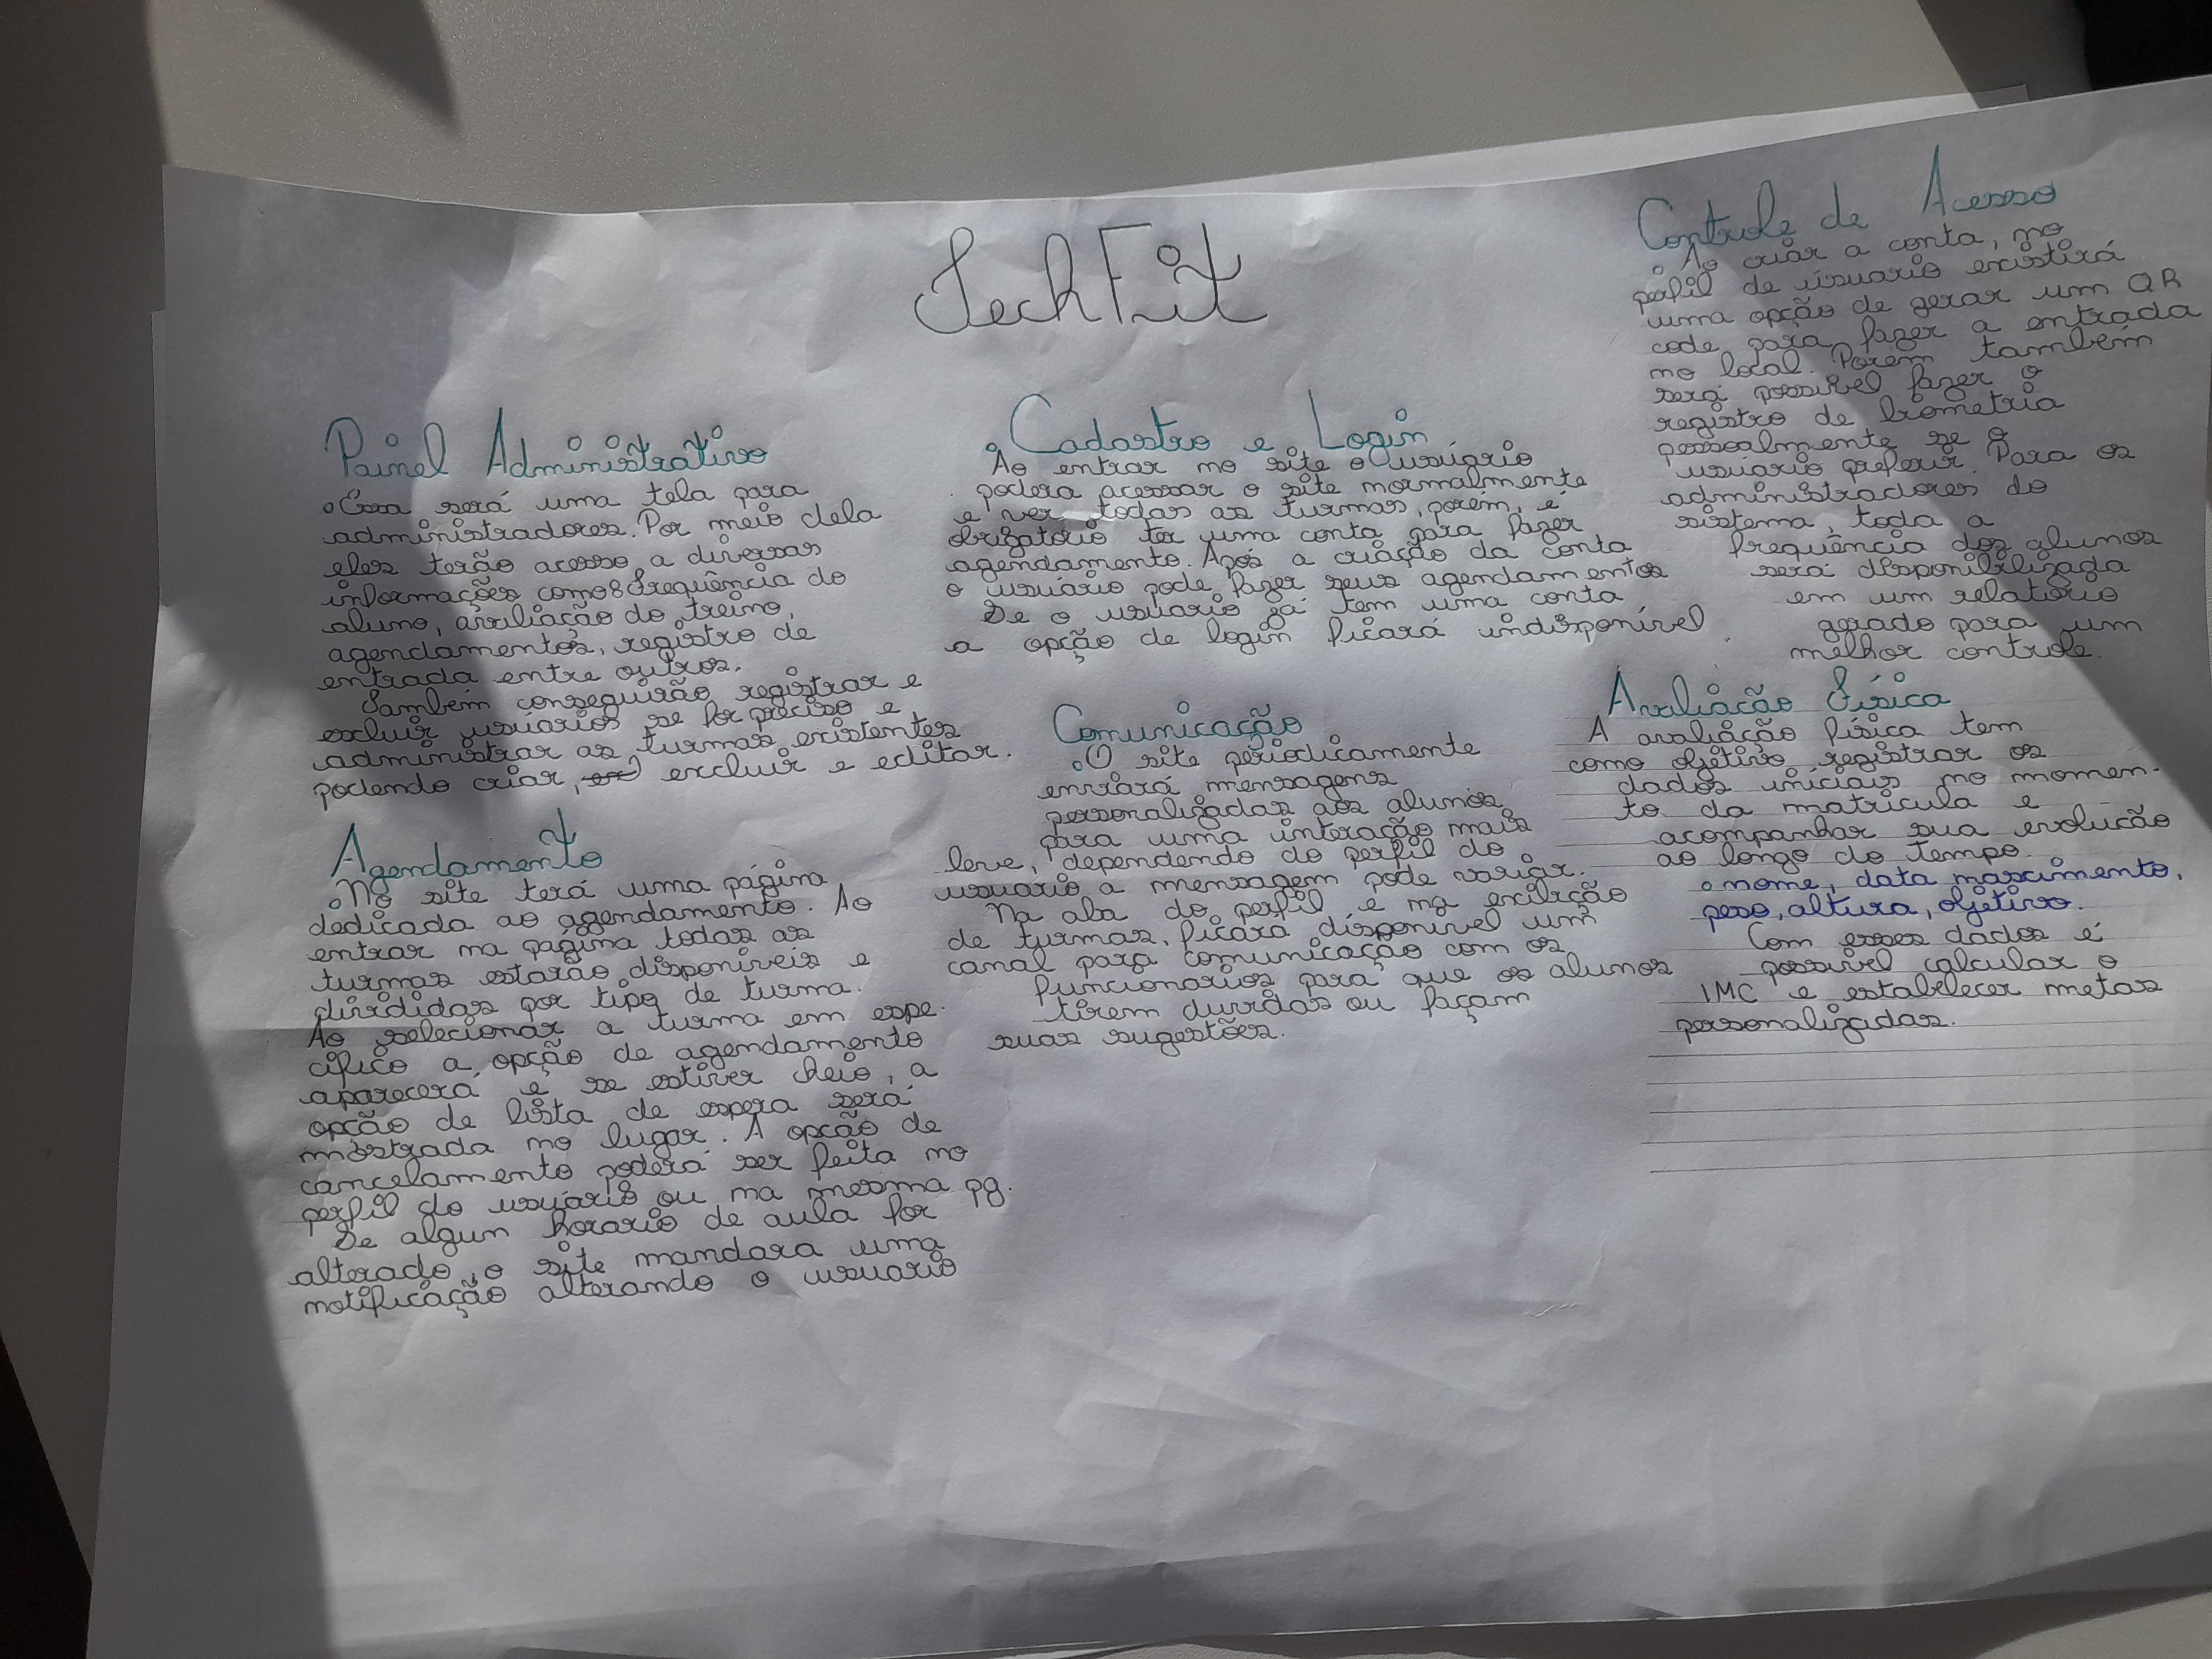 TechFit
Painel Administrativo
• Essa será uma tela para
administradores. Por meio dela
eles terão acesso a diversas
informações como: frequência do
aluno, avaliação do treino,
agendamentos, registro de
entrada entre outros.
Também conseguirão registrar e
excluir usuários se for preciso e
administrar as turmas existentes
podendo criar, excluir e editar.
Agendamento
• No site terá uma página
dedicada ao agendamento. Ao
entrar na pagina todas as
turmas estarão disponíveis e
divididas por tipo de turma.
Ao selecionar a turma em espe-
cífico a opção de agendamento
aparecerá e se estiver cheio, a
opção de lista de espera será
mostrada no lugar. A opção de
cancelamento poderá ser feita no
perfil do usuário ou na mesma pg.
Se algum horário de aula for
alterado o site mandara uma
notificação alterando o usuario
• Cadastro e Login
Ao entrar no site o usuário
podera acessar o site normalmente
e ver todas as turmas, porem, é
obrigatório ter uma conta para fazer
agendamento. Após a criação da conta
o usuário pode fazer seus agendamentos
Se o usuario já tem uma conta
a opção de login ficará indisponível
Comunicação
• O site periodicamente
enviará mensagens
personalizadas aos alunos
para uma interação mais
leve, dependendo do perfil do
usuario a mensagem pode variar.
Na aba do perfil e na exibição
de turmas, ficara disponivel um
canal para comunicação com os
funcionarios para que os alunos
tirem duvidas ou façam
suas sugestões.
Controle de Acesso
• Ao criar a conta, no
perfil de usuario existirá
uma opção de gerar um QR
code para fazer a entrada
no local. Porem também
será possivel fazer o
registro de biometria
pessoalmente se o
usuario preferir. Para os
administradores do
sistema toda a
frequência dos alunos
será disponibilizada
em um relatório
gerado para um
melhor controle.
Avaliação Física
A avaliação física tem
como objetivo registrar os
dados iniciais no momen-
to da matricula e
acompanhar sua evolução
ao longo do tempo.
• nome, data nascimento,
peso, altura, objetivo.
Com esses dados é
possivel calcular o
IMC e estabelecer metas
personalizadas.